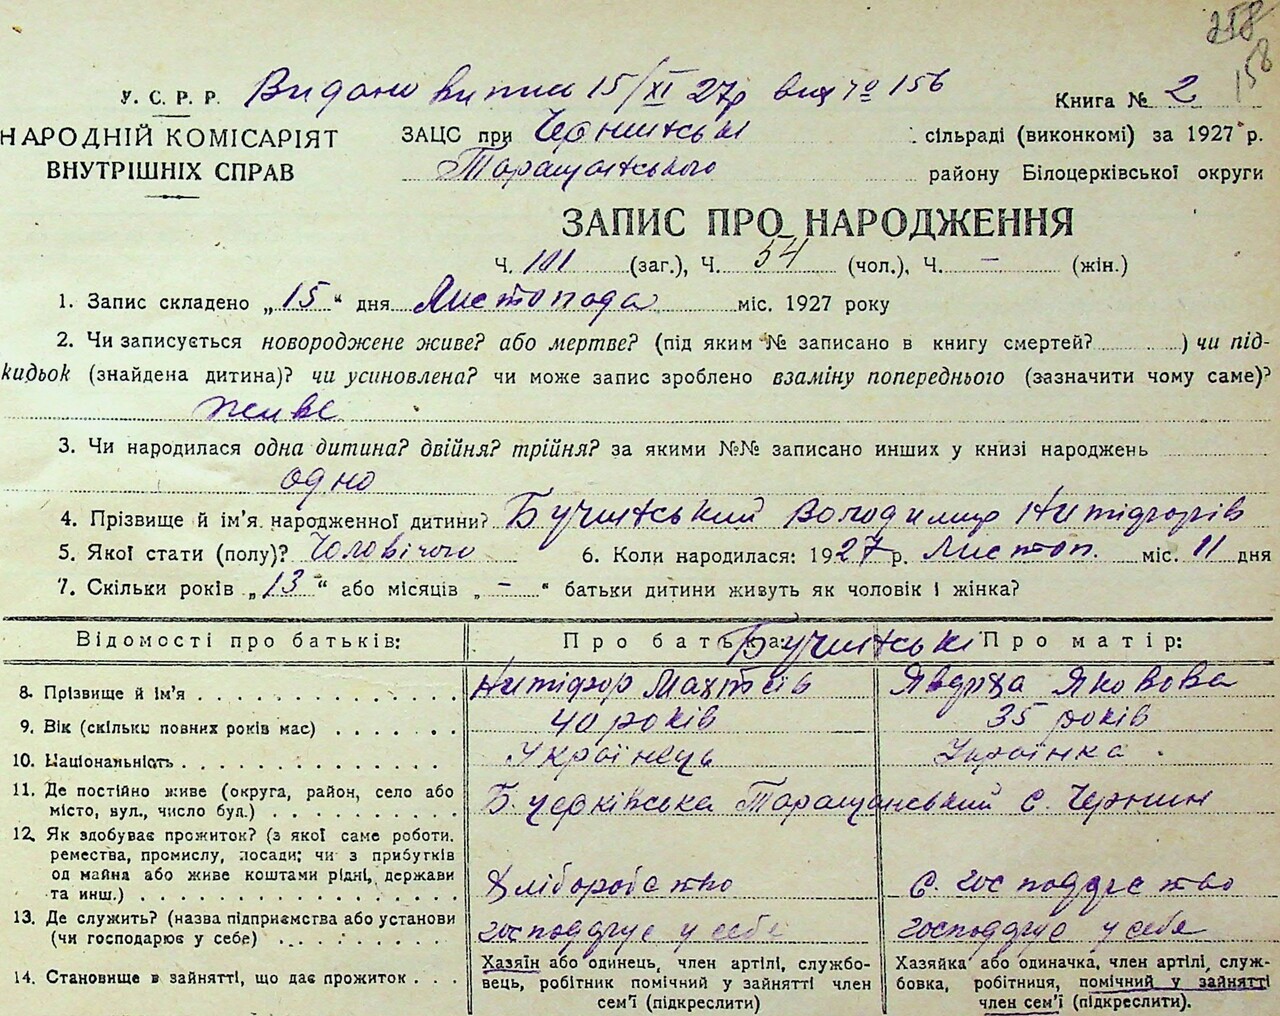 258
158
У. С. Р. Р. Видано витяг 15/XI 27р вих № 156
Книга № 2
НАРОДНІЙ КОМІСАРІЯТ
ВНУТРІШНІХ СПРАВ
ЗАЦС при Чернинські сільраді (виконкомі) за 1927 р.
Таращанського району Білоцерківської округи
ЗАПИС ПРО НАРОДЖЕННЯ
Ч. 101 (заг.), Ч. 54 (чол.), Ч. – (жін.)
1. Запис складено „15“ дня Листопада міс. 1927 року
2. Чи записується новороджене живе? або мертве? (під яким № записано в книгу смертей? ) чи під-
кидьок (знайдена дитина)? чи усиновлена? чи може запис зроблено взаміну попереднього (зазначити чому саме)?
живе
3. Чи народилася одна дитина? двійня? трійня? за якими №№ записано инших у книзі народжень
одно
4. Прізвище й ім’я народженної дитини? Бучинський Володимир Ничіфорів
5. Якої стати (полу)? Чоловічого 6. Коли народилася: 1927 р. Листоп. міс. 11 дня
7. Скільки років „13“ або місяців „–“ батьки дитини живуть як чоловік і жінка?
Відомості про батьків: Про батька: Бучинські Про матір:
8. Прізвище й ім’я Ничіфор Махтеїв Явдоха Яковова
9. Вік (скільки повних років має) 40 років 35 років
10. Національність Українець Українка
11. Де постійно живе (округа, район, село або
місто, вул., число буд.) Б. Церківська Таращанський с. Чернин
12. Як здобуває прожиток? (з якої саме роботи,
ремества, промислу, посади; чи з прибутків
од майна або живе коштами рідні, держави
та инш.) Хліборобство С. господарство
13. Де служить? (назва підприємства або установи
(чи господарює у себе) господарує у себе господарує у себе
14. Становище в зайнятті, що дає прожиток
Хазяїн або одинець, член артілі, службо-
вець, робітник помічний у зайнятті член
сем’ї (підкреслити)
Хазяйка або одиначка, член артілі, служ-
бовка, робітниця, помічний у зайнятті
член сем’ї (підкреслити).